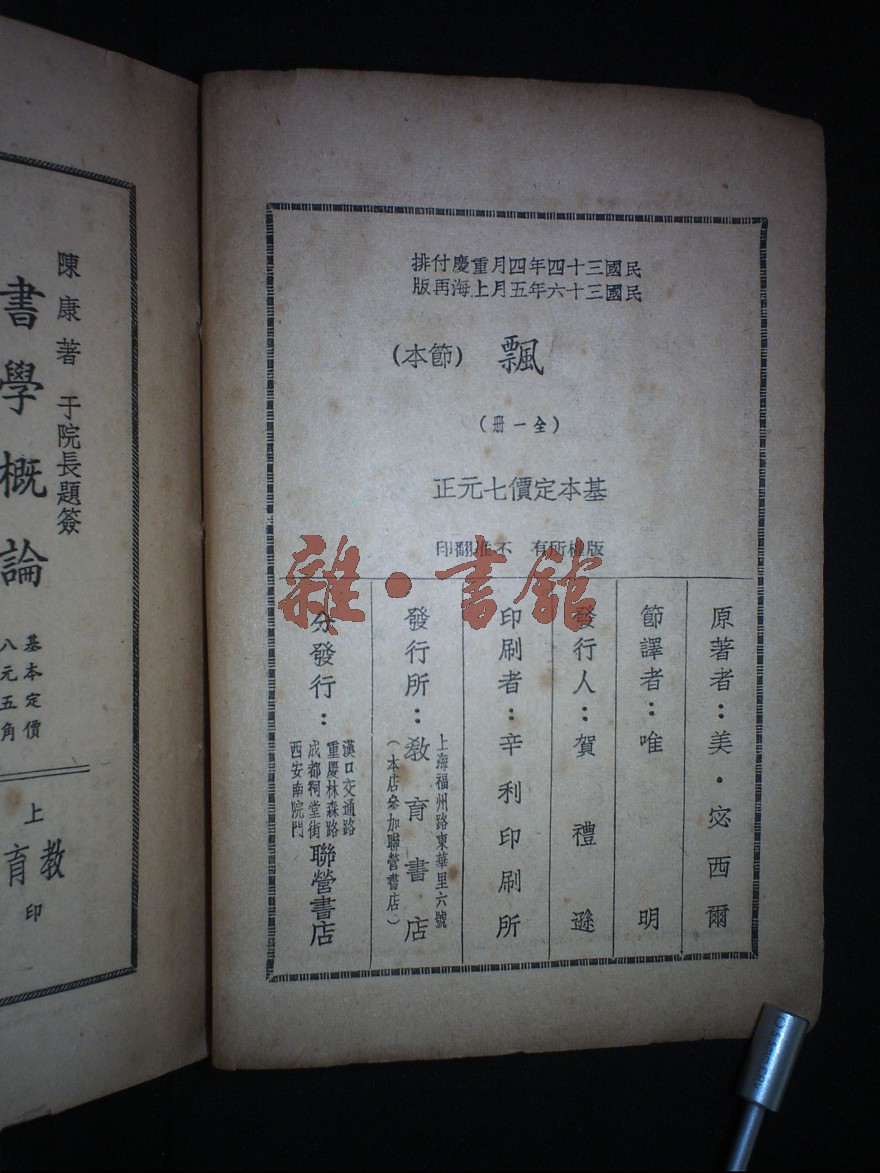 民國三十四年四月重慶付排
民國三十六年五月上海再版
飄 (節本)
(全一冊)
基本定價七元正
版權所有 不准翻印
原著者：美·宓西爾
節譯者：唯明
發行人：賀禮遜
印刷者：辛利印刷所
發行所：教育書店
上海福州路東華里六號
(本店參加聯營書店)
分發行：
漢口交通路
重慶林森路
成都祠堂街
西安南院門
聯營書店
雜·書館
陳康著 于院長題簽
書學概論
基本定價
八元五角
上
教
育
印